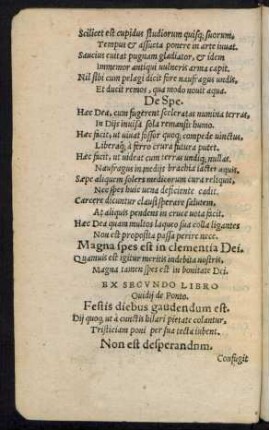 Scilicet est cupidus studiorum quisq; suorum,
Tempus & assueta ponere in arte iuuat.
Saucius eiurat pugnam gladiator, & idem
Immemor antiqui uulneris arma capit.
Nil sibi cum pelagi dicit fore naufragus undis,
Et ducit remos, qua modo nauit aqua.
De Spe.
Hæc Dea, cum fugerent sceleratas numina terras,
In Dijs inuisa sola remansit humo.
Hæc facit, ut uiuat fossor quoq; compede uinctus,
Liberaq; à ferro crura futura putet.
Hæc facit, ut uideat cum terras undiq; nullas,
Naufragus in medijs brachia iactet aquis.
Sæpe aliquem solers medicorum cura reliquit,
Nec spes huic uena deficiente cadit.
Carcere dicuntur clausi sperare salutem,
Atq; aliquis pendens in cruce uota facit.
Hæc Dea quam multos laqueo sua colla ligantes
Non est proposita passa perire nece.
Magna spes est in clementia Dei.
Quamuis est igitur meritis indebita nostris,
Magna tamen spes est in bonitate Dei.
EX SECVNDO LIBRO
Ouidij de Ponto.
Festis diebus gaudendum est.
Dij quoq; ut à cunctis hilari pietate colantur,
Tristiciam poni per sua festa iubent.
Non est desperandum.
Confugit